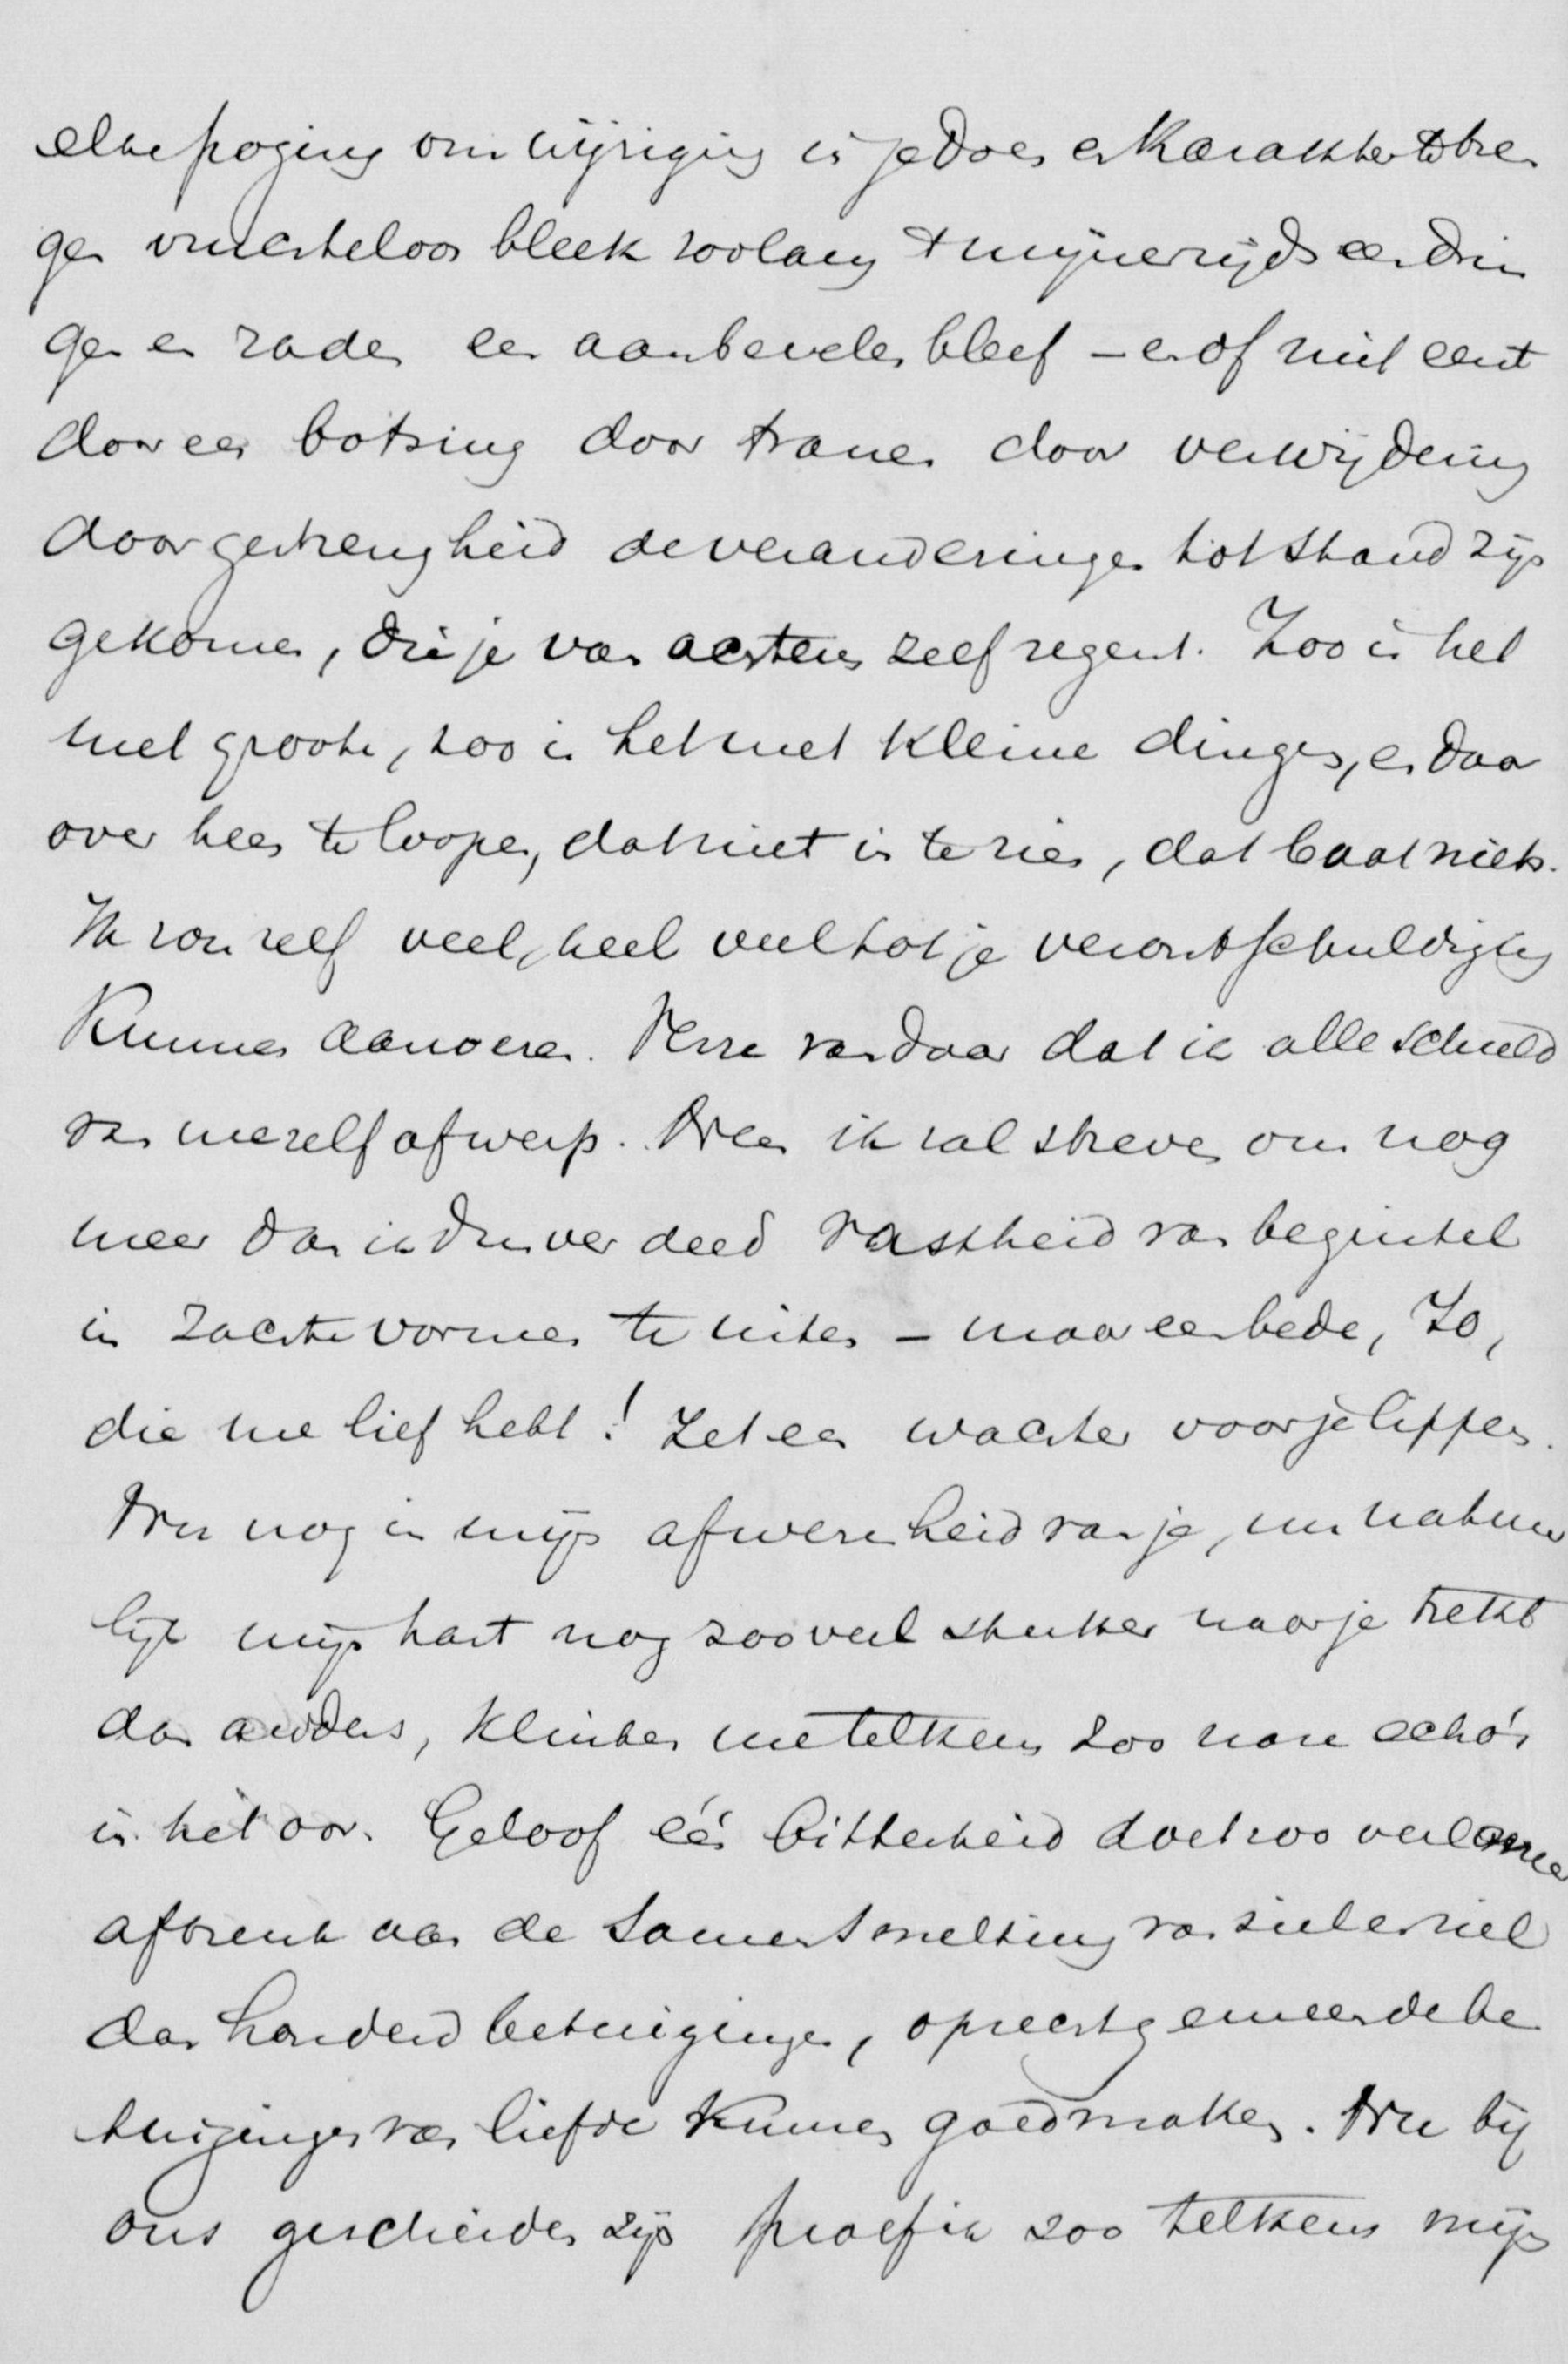 elke poging om wijziging in je doen en karakter te bren
gen vruchteloos bleek zoolang 't mijnerzijds een drin
gen en raden een aanbevelen bleef – en of niet eerst
door een botsing door tranen door verwijdering
door gestrengheid de veranderingen tot stand zijn
gekomen, die je van achteren zelf zegent. Zoo is het
met groote, zoo is het met kleine dingen, en daar
over heen te loopen, dat niet in te zien, dat baat niets.
Ik zou zelf veel, heel veel tot je verontschuldiging
kunnen aanvoeren. Verre vandaar dat ik alle schuld
van mezelf afwerp. Neen ik zal streven om nog
meer dan ik dusver deed vastheid van beginsel
in zachte vormen te uiten – maar een bede, Jo,
die me lief hebt! Zet een wachter voor je lippen.
Nu nog in mijn afwezenheid van je, nu natuur
lijk mijn hart nog zooveel sterker naar je trekt
dan anders, klinken me telkens zoo nare echo's
in het oor. Geloof één bitterheid doet zoo veel meer
afbreuk aan de samensmelting van ziel en ziel
dan honderd betuigingen, oprecht gemeende be
tuigingen van liefde kunnen goedmaken. Nu bij
ons gescheiden zijn proef ik zoo telkens mijn